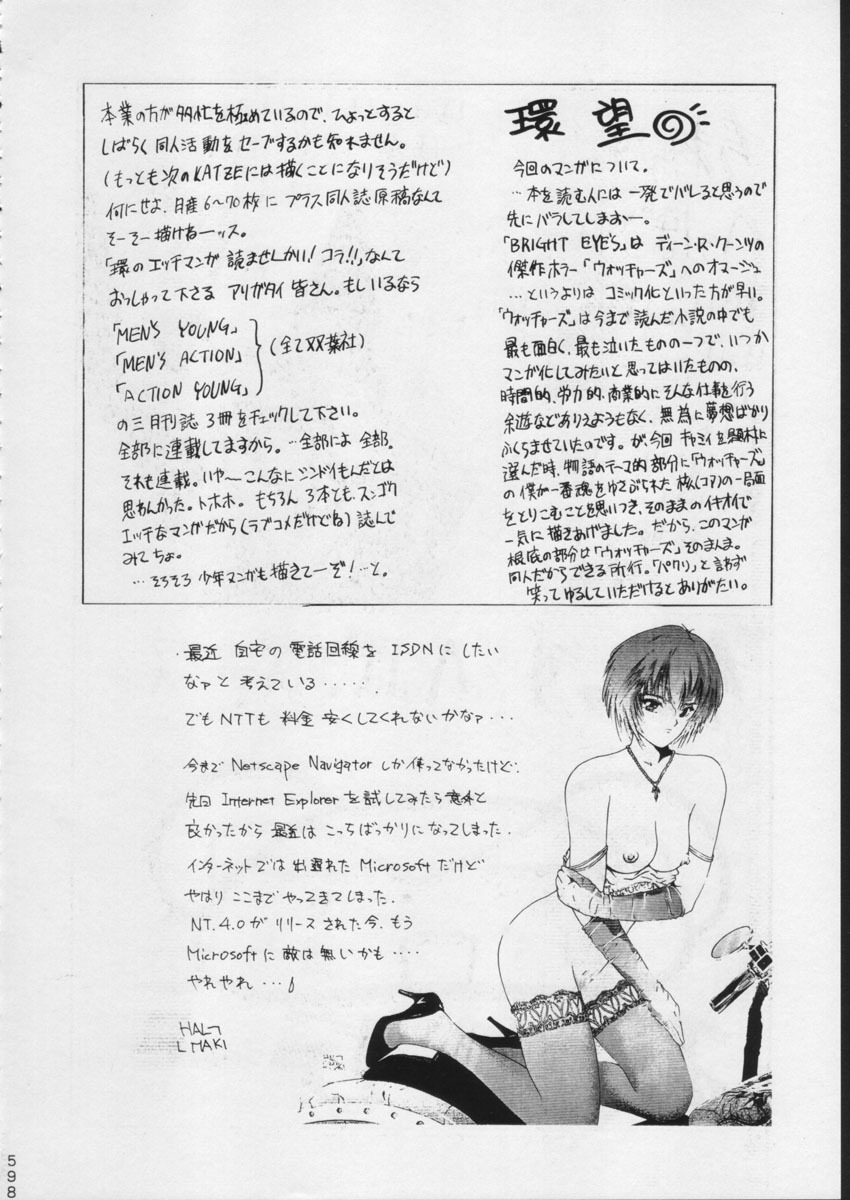 環 望
今回のマンガについて。
…本を読む人には一発でバレると思うので
先にバラしてしまおー。
「BRIGHT EYE'S」は ディーン・R・クーンツの
傑作ホラー「ウォッチャーズ」へのオマージュ
…というよりは コミック化といった方が早い。
「ウォッチャーズ」は今まで読んだ小説の中でも
最も面白く、最も泣いたものの一つで、いつか
マンガ化してみたいと思ってはいたものの、
時間的、労力的、商業的にそんな仕事を行う
余遊などありえようもなく、無為に夢想ばかり
ふくらませていたのです。が、今回 キャミィを題材に
選んだ時、物語のテーマ的部分に「ウォッチャーズ」
の僕が一番魂をゆさぶられた核(コア)の一局面
をとりこむことを思いつき、そのままのイキオイで
一気に描きあげました。だから、このマンガ
根底の部分は「ウォッチャーズ」そのまんま。
同人だからできる所行。「パクリ」と言わず
笑ってゆるしていただけるとありがたい。
本業の方が多忙を極めているので、ひょっとすると
しばらく同人活動をセーブするかも知れません。
(もっとも次のKATZEには描くことになりそうだけど)
何にせよ、月産6〜70枚にプラス同人誌原稿なんて
そーそー描けねーッス。
「環のエッチマンガが読ませんかい!コラ!!」なんて
おっしゃって下さる アリガタイ 皆さん。もしいるなら
「MEN'S YOUNG」
「MEN'S ACTION」(全て双葉社)
「ACTION YOUNG」
の三月刊誌 3冊をチェックして下さい。
全部に連載してますから。…全部によ 全部。
それも連載。いや〜こんなにシンドイもんだとは
思わんかった。トホホ。もちろん 3本とも、スンゴク
エッチなマンガだから(ラブコメだけどね)読んで
みてちょ。
…そろそろ 少年マンガも描きてーぞ!…と。
・最近 自宅の 電話回線を ISDNに したい
なァと 考えている‥‥‥.
でもNTTも 料金 安くしてくれないかなァ・・・
今まで Netscape Navigator しか使ってなかったけど、
先日 Internet Explorer を試してみたら 意外と
良かったから 最近は こっちばっかりになってしまった.
インターネットでは 出遅れた Microsoft だけど
やはり ここまで やってきてしまった.
NT.4.0が リリース された今、もう
Microsoftに 敵は無いかも‥‥
やれやれ…
598